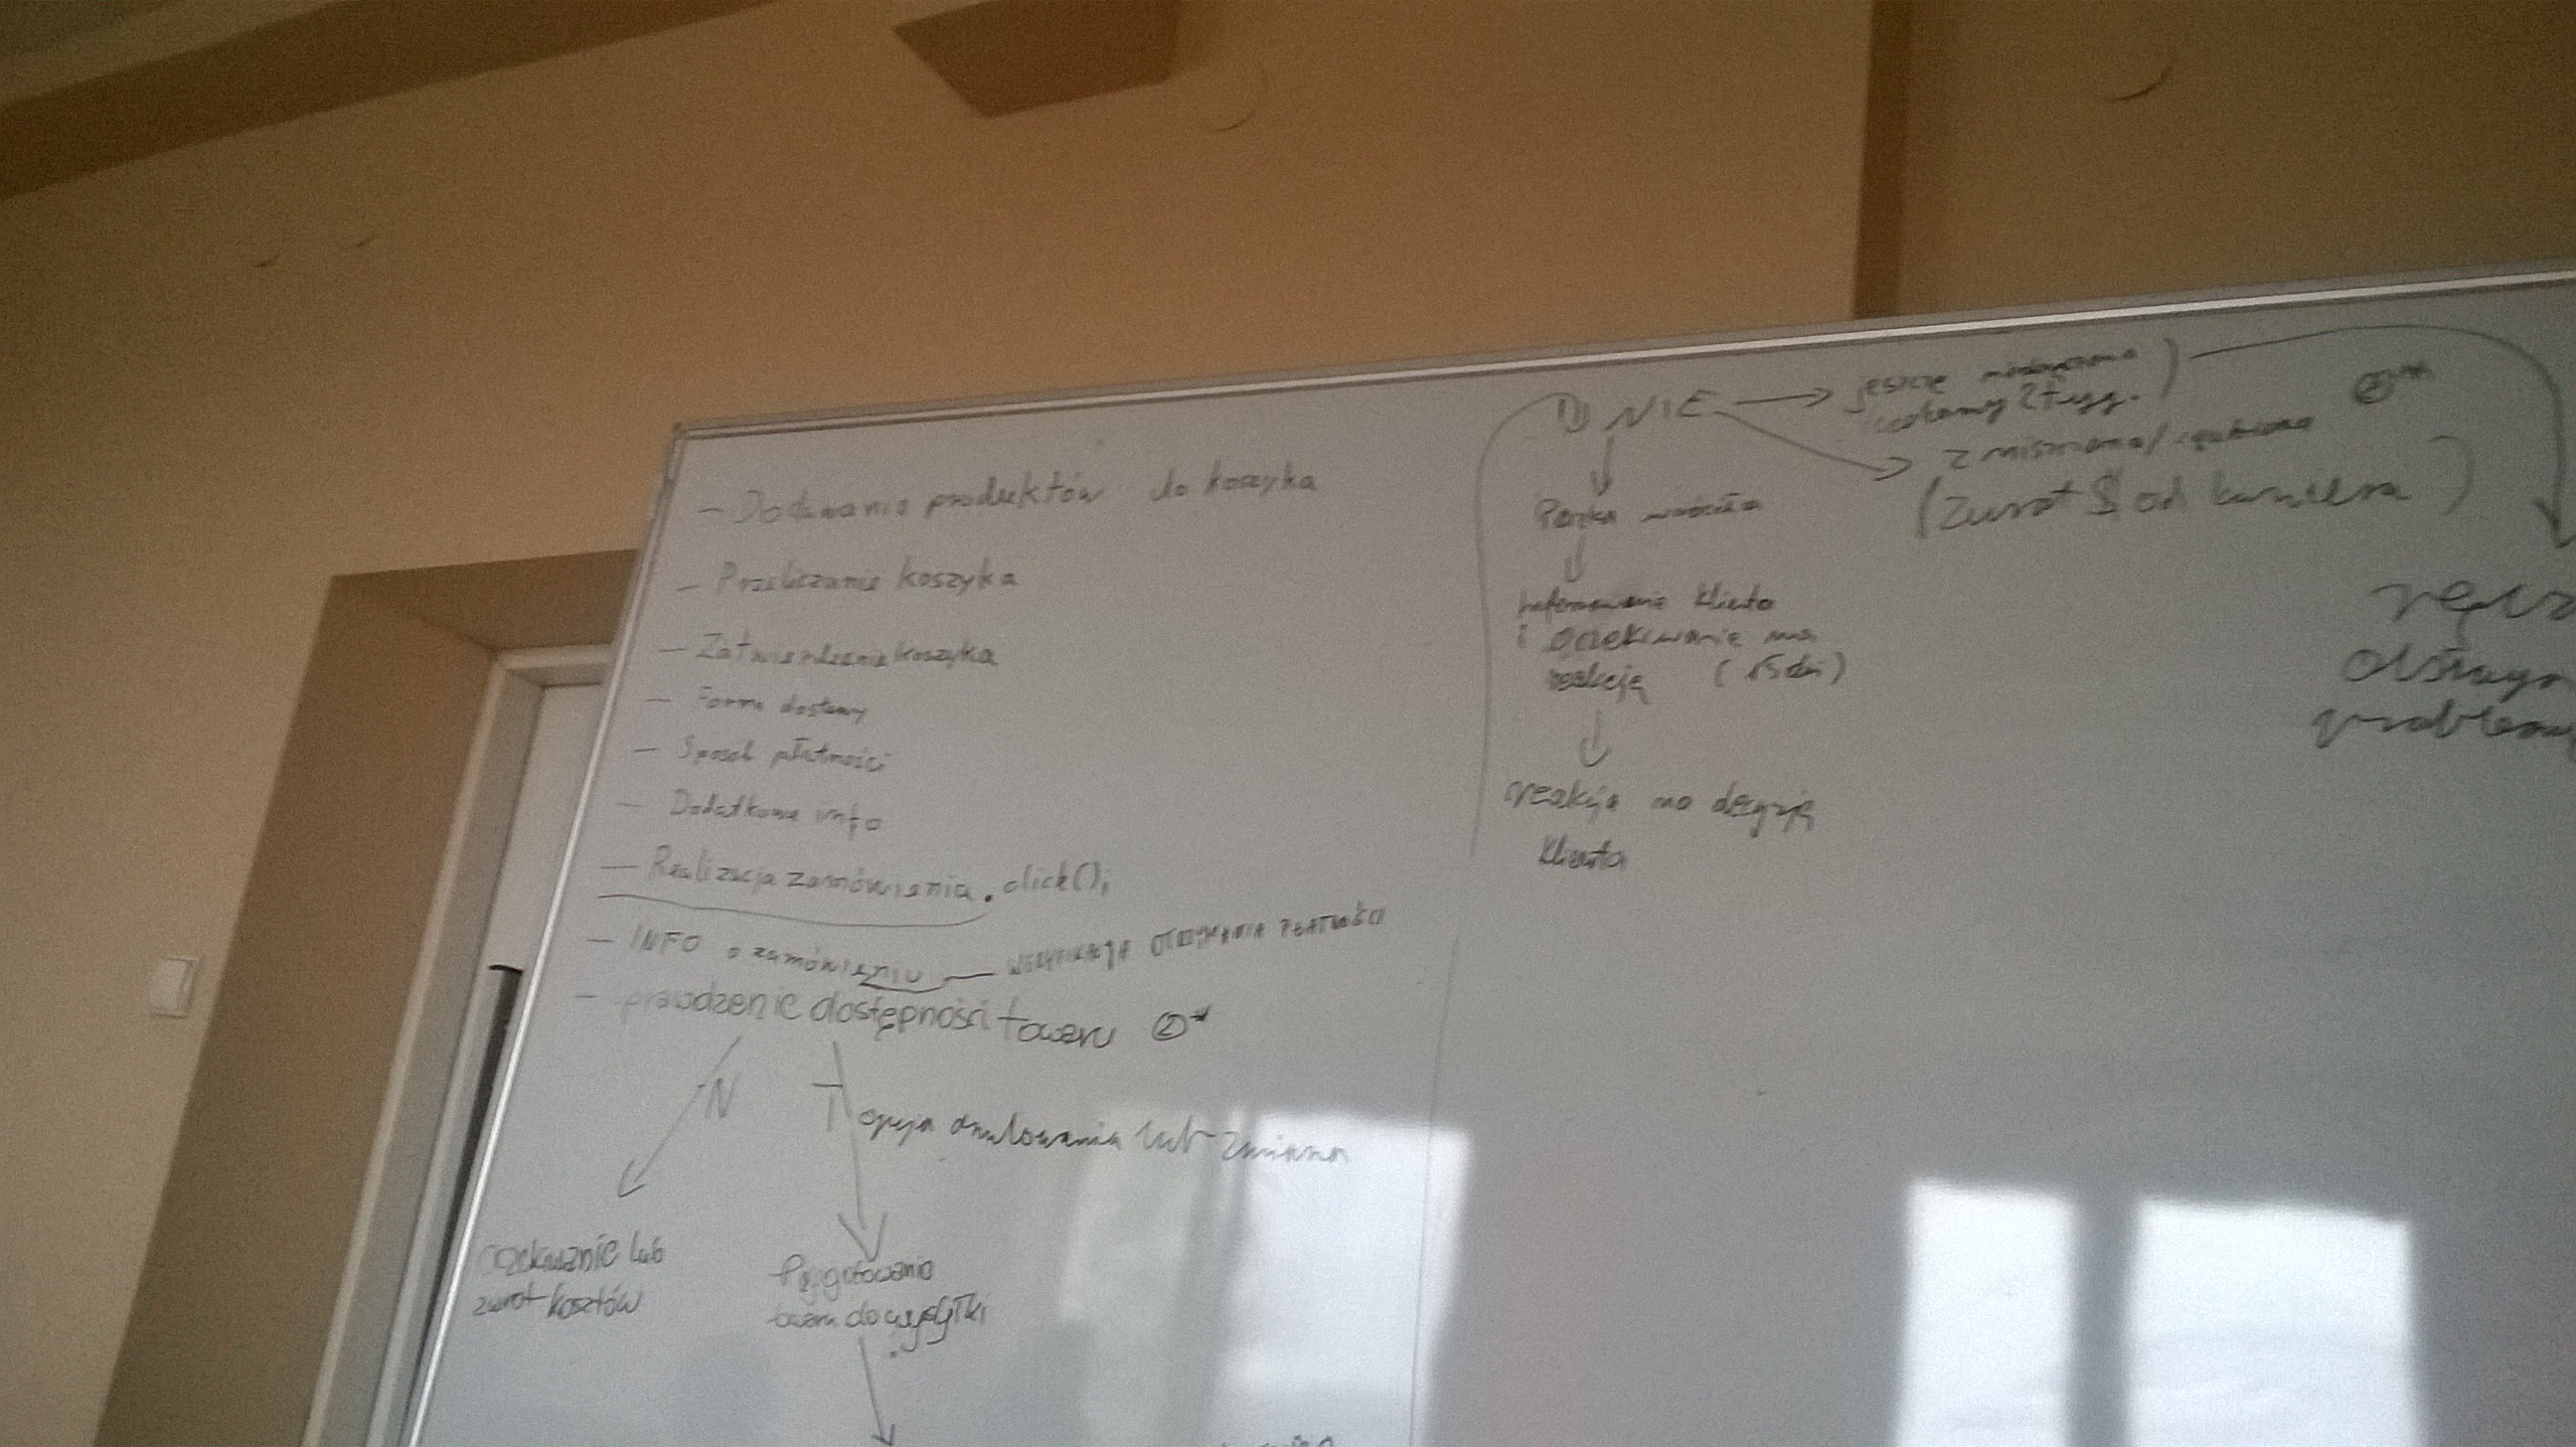 - Dodawanie produktów do koszyka
- Przeliczanie koszyka
- Zatwierdzenie koszyka
- Forma dostawy
- Sposób płatności
- Dodatkowe info
- Realizacja zamówienia.click();
- INFO o zamówieniu — WERYFIKACJA OTRZYMANIA PŁATNOŚCI
- sprawdzenie dostępności towaru 2*
N T
opcja anulowania lub zmiana
oczekiwanie lub
zwrot kosztów
Przygotowanie
towaru do wysyłki
1) NIE
jeszcze
2 tyg.)
2**
(zwrot $ od kuriera)
Paczka wróciła
Informowanie klienta
i oczekiwanie na
reakcję (15 dni)
reakcja na decyzję
klienta